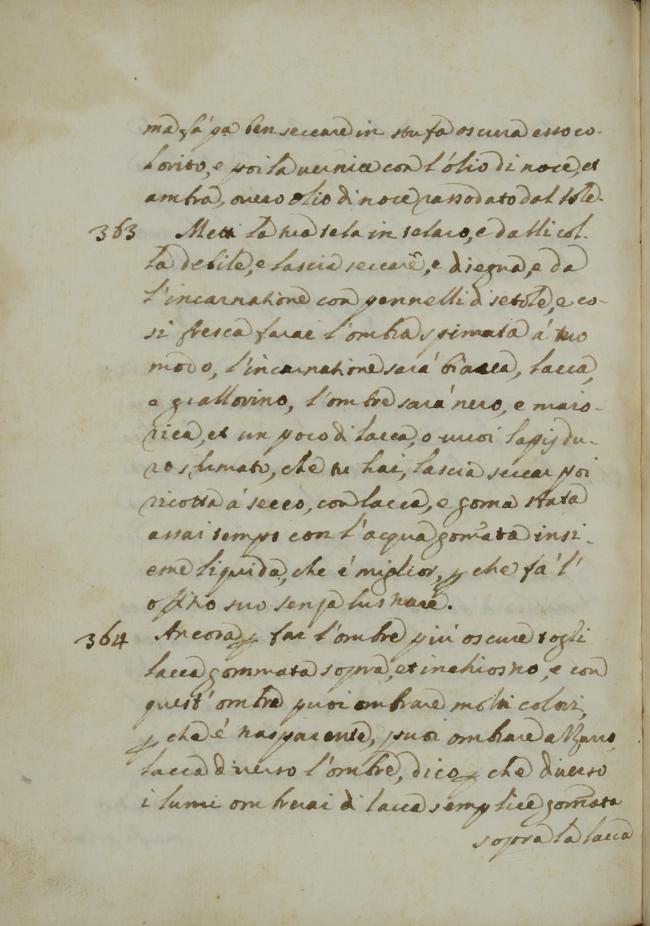 ma fà pa ben seccare in stufa oscura esso co-
lorito, e poi la vernice con l'ólio di noce, et
ambra, overo olio di noce rassodato dal sole.
363 Metti la tua tela in telaro, e dalli col-
la debile, e lascia seccare, e disegna, e da
l'incarnatione con pennelli di setole, e co-
si fresca farai l'ombra sfumata á tuo
modo, l'incarnatione sará biacca, lacca,
e giallorino, l'ombre sará nero, e maio-
rica, et un poco di lacca, o vuoi lapis du-
ro sfumato, che tu hai, lascia seccar poi
ricotta á secco, con lacca, e goma stata
assai tempo con l'acqua gomata insi-
eme liquida, che é miglior, p che fá l'
offitio suo senza lustrare.
364 Ancora p far l'ombre piú oscure togli
lacca gommata sopra, et inchiostro, e con
quest'ombra puoi ombrare molti colori,
p che é trasparente, puoi ombrare azurro,
lacca diverso l'ombre, dico p che diverso
i lumi ombrerai di lacca semplice gomata
sopra la lacca